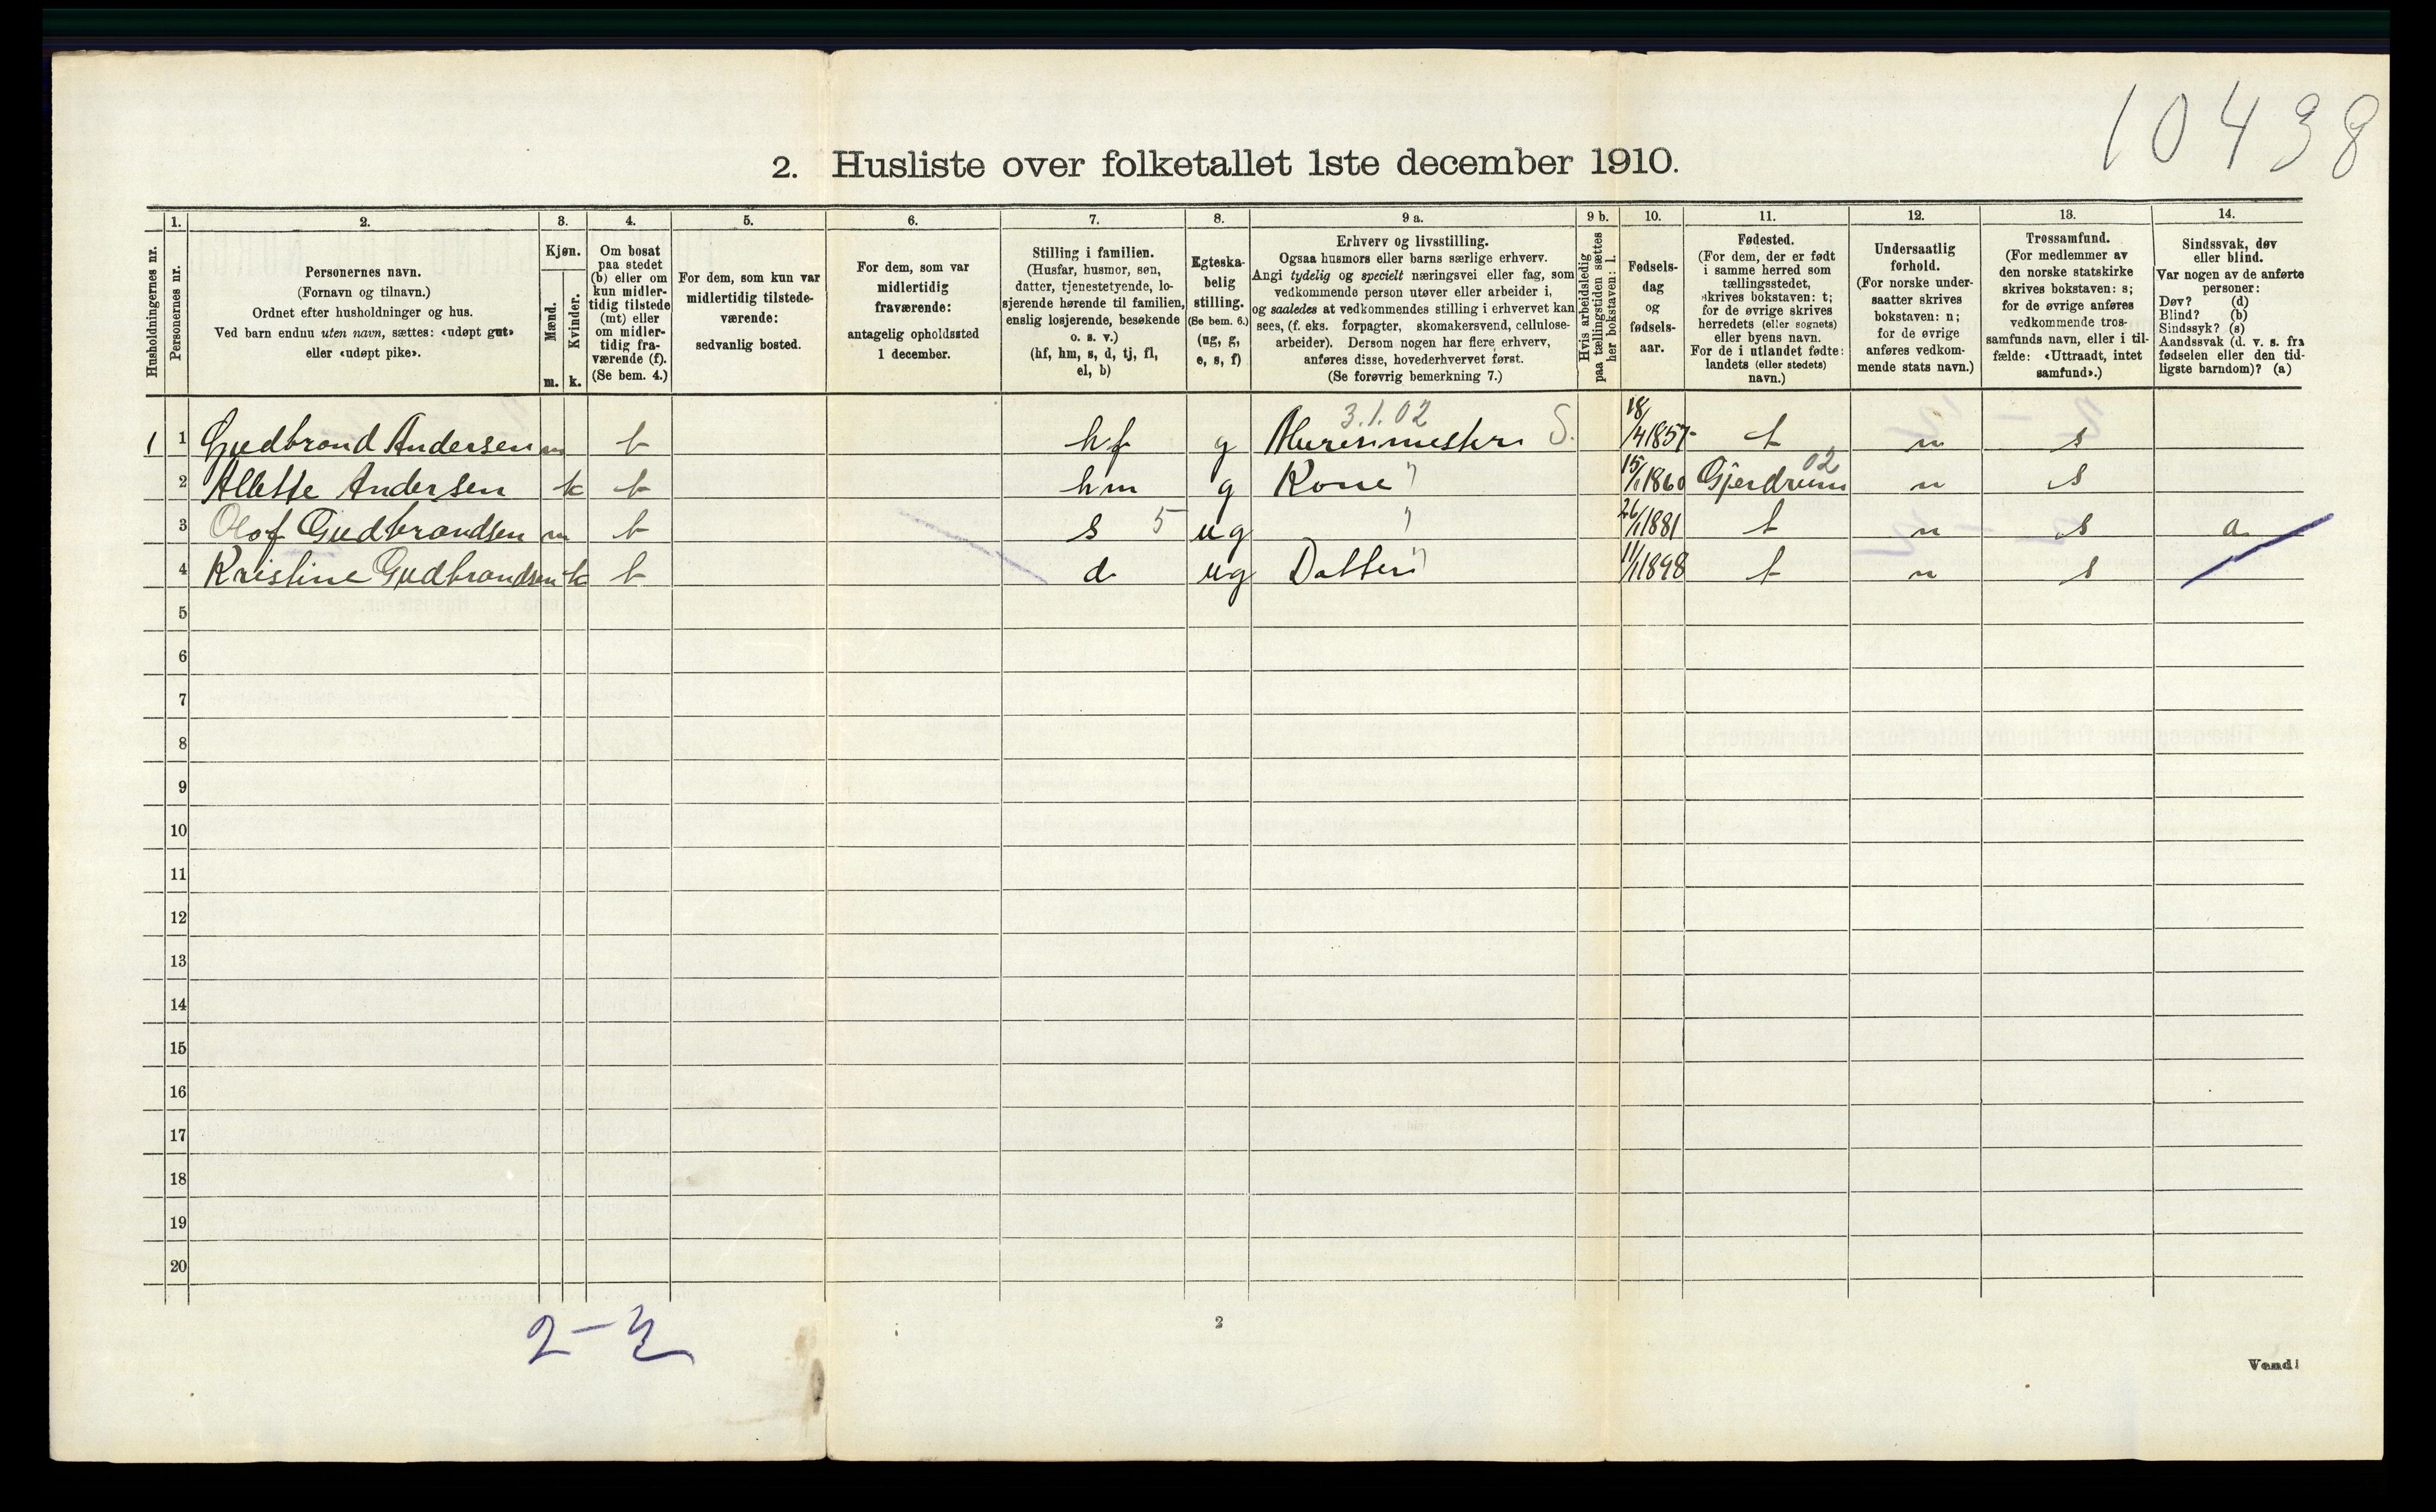 10438
2. Husliste over folketallet 1ste december 1910.
Husholdningernes nr.
1.
Personernes nr.
2.
Personernes navn.
(Fornavn og tilnavn.)
Ordnet efter husholdninger og hus.
Ved barn endnu uten navn, sættes: «udøpt gut»
eller «udøpt pike».
3.
Kjøn.
Mænd.
Kvinder.
m. k.
4.
Om bosat
paa stedet
(b) eller om
kun midler-
tidig tilstede
(mt) eller
om midler-
tidig fra-
værende (f).
(Se bem. 4.)
5.
For dem, som kun var
midlertidig tilstede-
værende:
sedvanlig bosted.
6.
For dem, som var
midlertidig
fraværende:
antagelig opholdssted
1 december.
7.
Stilling i familien.
(Husfar, husmor, søn,
datter, tjenestetyende, lo-
sjerende hørende til familien,
enslig losjerende, besøkende
o. s. v.)
(hf, hm, s, d, tj, fl,
el, b)
8.
Egteska-
belig
stilling.
(Se bem. 6.)
(ug, g,
e, s, f)
9 a.
Erhverv og livsstilling.
Ogsaa husmors eller barns særlige erhverv.
Angi tydelig og specielt næringsvei eller fag, som
vedkommende person utøver eller arbeider i,
og saaledes at vedkommendes stilling i erhvervet kan
sees, (f. eks. forpagter, skomakersvend, cellulose-
arbeider). Dersom nogen har flere erhverv,
anføres disse, hovederhvervet først.
(Se forøvrig bemerkning 7.)
9 b.
Hvis arbeidsledig
paa tællingstiden sættes
her bokstaven: l.
10.
Fødsels-
dag
og
fødsels-
aar.
11.
Fødested.
(For dem, der er født
i samme herred som
tællingsstedet,
skrives bokstaven: t;
for de øvrige skrives
herredets (eller sognets)
eller byens navn.
For de i utlandet fødte:
landets (eller stedets)
navn.)
12.
Undersaatlig
forhold.
(For norske under-
saatter skrives
bokstaven: n;
for de øvrige
anføres vedkom-
mende stats navn.)
13.
Trossamfund.
(For medlemmer av
den norske statskirke
skrives bokstaven: s;
for de øvrige anføres
vedkommende tros-
samfunds navn, eller i til-
fælde: «Uttraadt, intet
samfund».)
14.
Sindssvak, døv
eller blind.
Var nogen av de anførte
personer:
Døv? (d)
Blind? (b)
Sindssyk? (s)
Aandssvak (d. v. s. fra
fødselen eller den tid-
ligste barndom)? (a)
3.1.02
1 1 Gudbrand Andersen m b hf g Murermester S. 18/4 1857 t n s
2 Allette Andersen k b hm g Kone " 15/1 1860 Gjerdrum 02 n s
3 Olof Gudbrandsen m b s 5 ug " 26/1 1881 t n s a
4 Kristine Gudbrandsen k b d ug Datter " 11/1 1898 t n s
5
6
7
8
9
10
11
12
13
14
15
16
17
18
19
20
2
Vend!